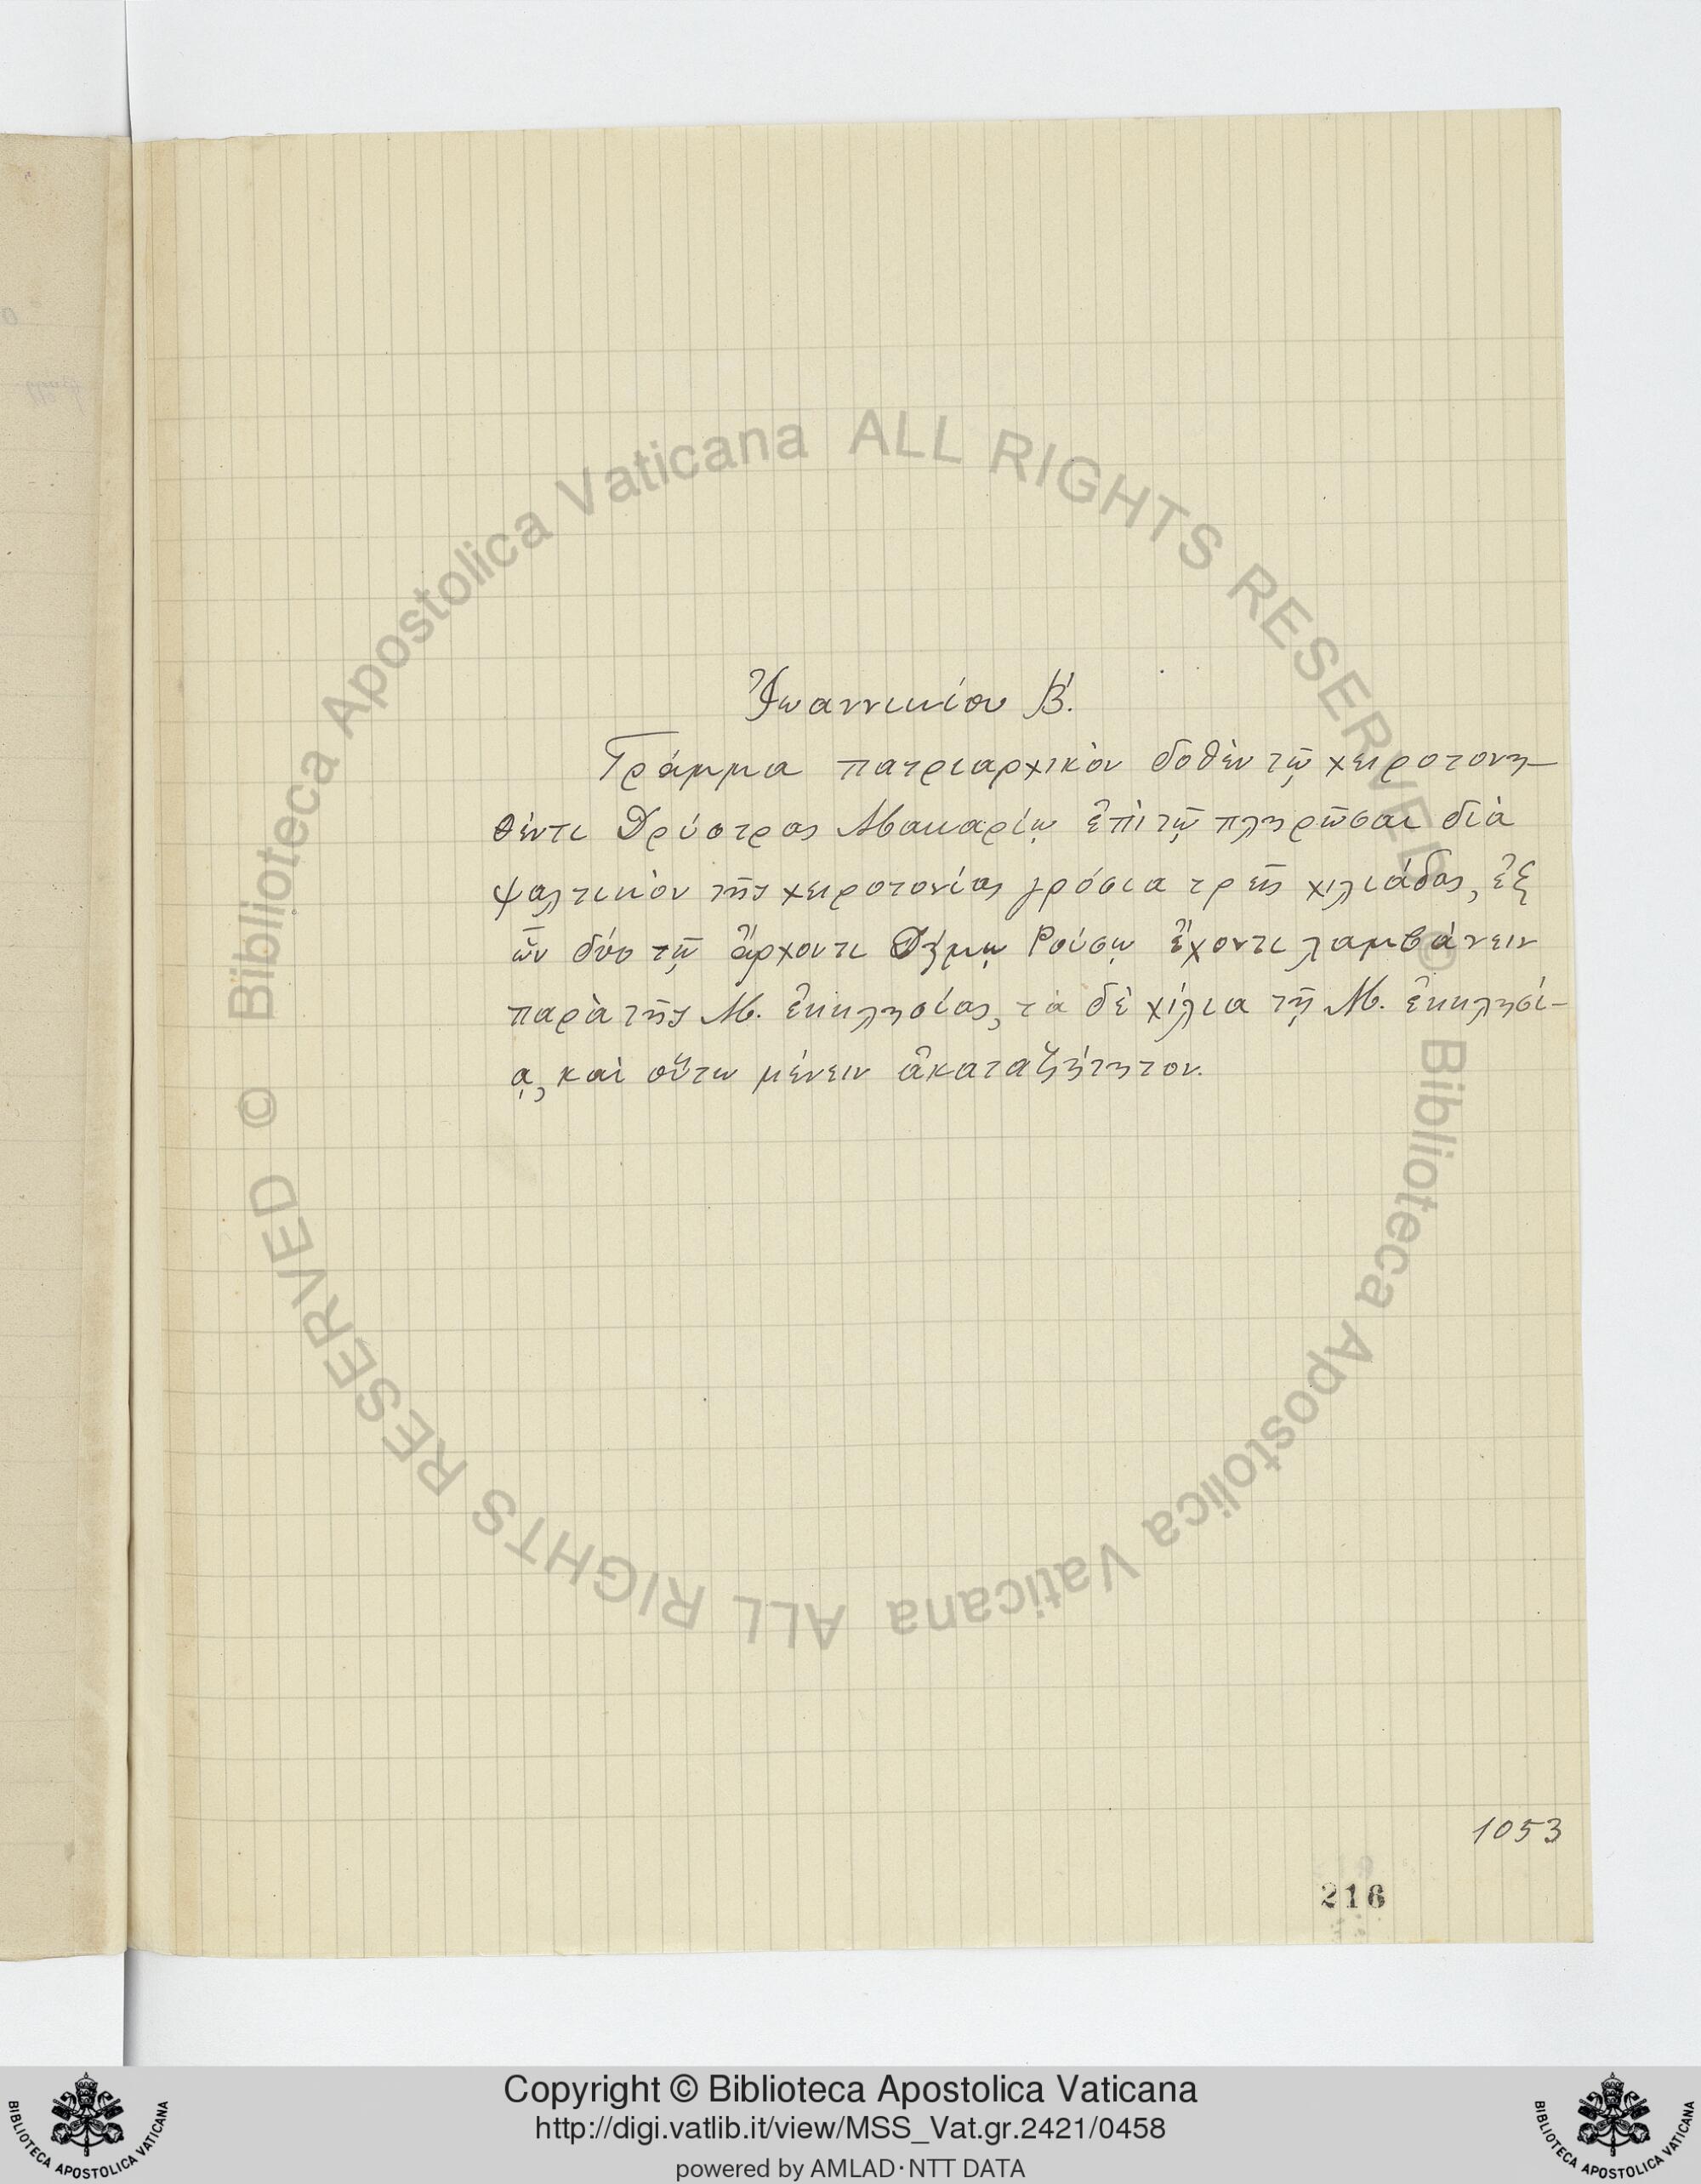 Ἰωαννικίου Β΄.
Γράμμα πατριαρχικὸν δοθὲν τῷ χειροτονη-
θέντι Δρύστρας Μακαρίῳ ἐπὶ τῷ πληρῶσαι διὰ
ψαλτικὸν τῆς χειροτονίας γρόσια τρεῖς χιλιάδας, ἐξ
ὧν δύο τῷ ἄρχοντι Δήμῳ Ρούσῳ ἔχοντι λαμβάνειν
παρὰ τῆς Μ. ἐκκλησίας, τὰ δὲ χίλια τῇ Μ. ἐκκλησί-
ᾳ, καὶ οὕτω μένειν ἀκαταζήτητον.
1053
216
© Biblioteca Apostolica Vaticana ALL RIGHTS RESERVED
© Biblioteca Apostolica Vaticana ALL RIGHTS RESERVED
Copyright © Biblioteca Apostolica Vaticana
http://digi.vatlib.it/view/MSS_Vat.gr.2421/0458
powered by AMLAD·NTT DATA
BIBLIOTECA APOSTOLICA VATICANA
BIBLIOTECA APOSTOLICA VATICANA